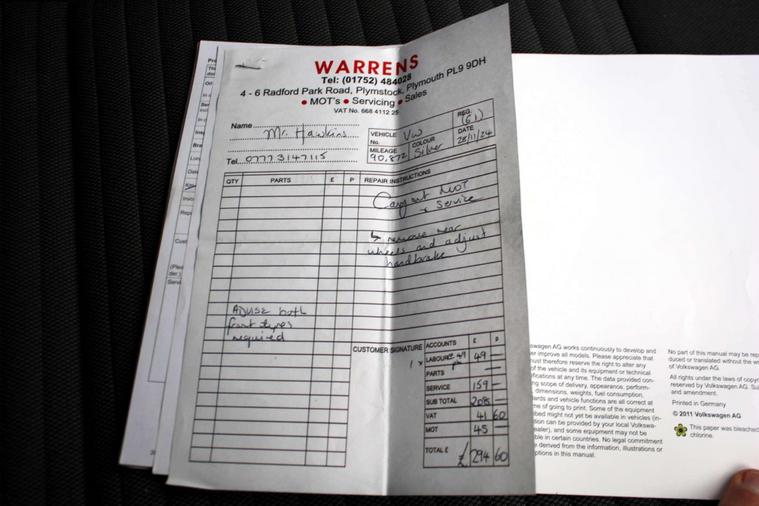 WARRENS
Tel: (01752) 484028
4 - 6 Radford Park Road, Plymstock, Plymouth PL9 9DH
• MOT's • Servicing • Sales
VAT No. 668 4112 25
Name Mr. Hawkins
Tel. 07773147115
VEHICLE VW
No.
REG. (61)
MILEAGE 90,872
COLOUR Silver
DATE 28/11/24
QTY PARTS £ P REPAIR INSTRUCTIONS
Carry out MOT
+ Service
↳ remove rear
wheels and adjust
handbrake
ADVISE both
front tyres
required
CUSTOMER SIGNATURE
ACCOUNTS £ P
LABOUR 49 —
PARTS —
SERVICE 159 —
SUB TOTAL 208 —
VAT 41 60
MOT 45 —
TOTAL £ £ 294 60
swagen AG works continuously to develop and
er improve all models. Please appreciate that
must therefore reserve the right to alter any
of the vehicle and its equipment or technical
ifications at any time. The data provided con-
ng scope of delivery, appearance, perform-
dimensions, weights, fuel consumption,
ards and vehicle functions are all correct at
e of going to print. Some of the equipment
bed might not yet be available in vehicles (in-
tion can be provided by your local Volkswa-
ealer), and some equipment may not be
ble in certain countries. No legal commitment
e derived from the information, illustrations or
ptions in this manual.
No part of this manual may be rep
duced or translated without the w
of Volkswagen AG.
All rights under the laws of copyr
reserved by Volkswagen AG. Sub
and amendment.
Printed in Germany
© 2011 Volkswagen AG
This paper was bleached
chlorine.